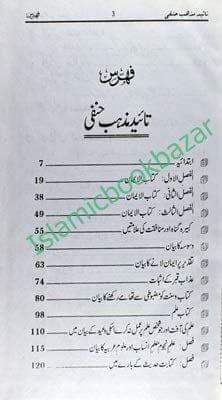 تائید مذہب حنفی 3 فہرس
فہرس
تائید مذہب حنفی
ابتدائیہ 7
الفصل الاول: کتاب الایمان 19
الفصل الثانی: کتاب الایمان 38
الفصل الثالث: کتاب الایمان 49
کبیرہ گناہ اور منافقت کی علامتیں 55
وسوسہ کا بیان 58
تقدیر پر ایمان لانے کا بیان 63
عذاب قبر کے اثبات 74
کتاب و سنت کو مضبوطی سے تھامے رکھنے کا بیان 80
کتاب علم 98
110
فصل: علم نجوم علم انساب اور علوم عربیہ کا بیان 115
فصل: کتابت حدیث کے بارے میں 120
Islamicbookbazar